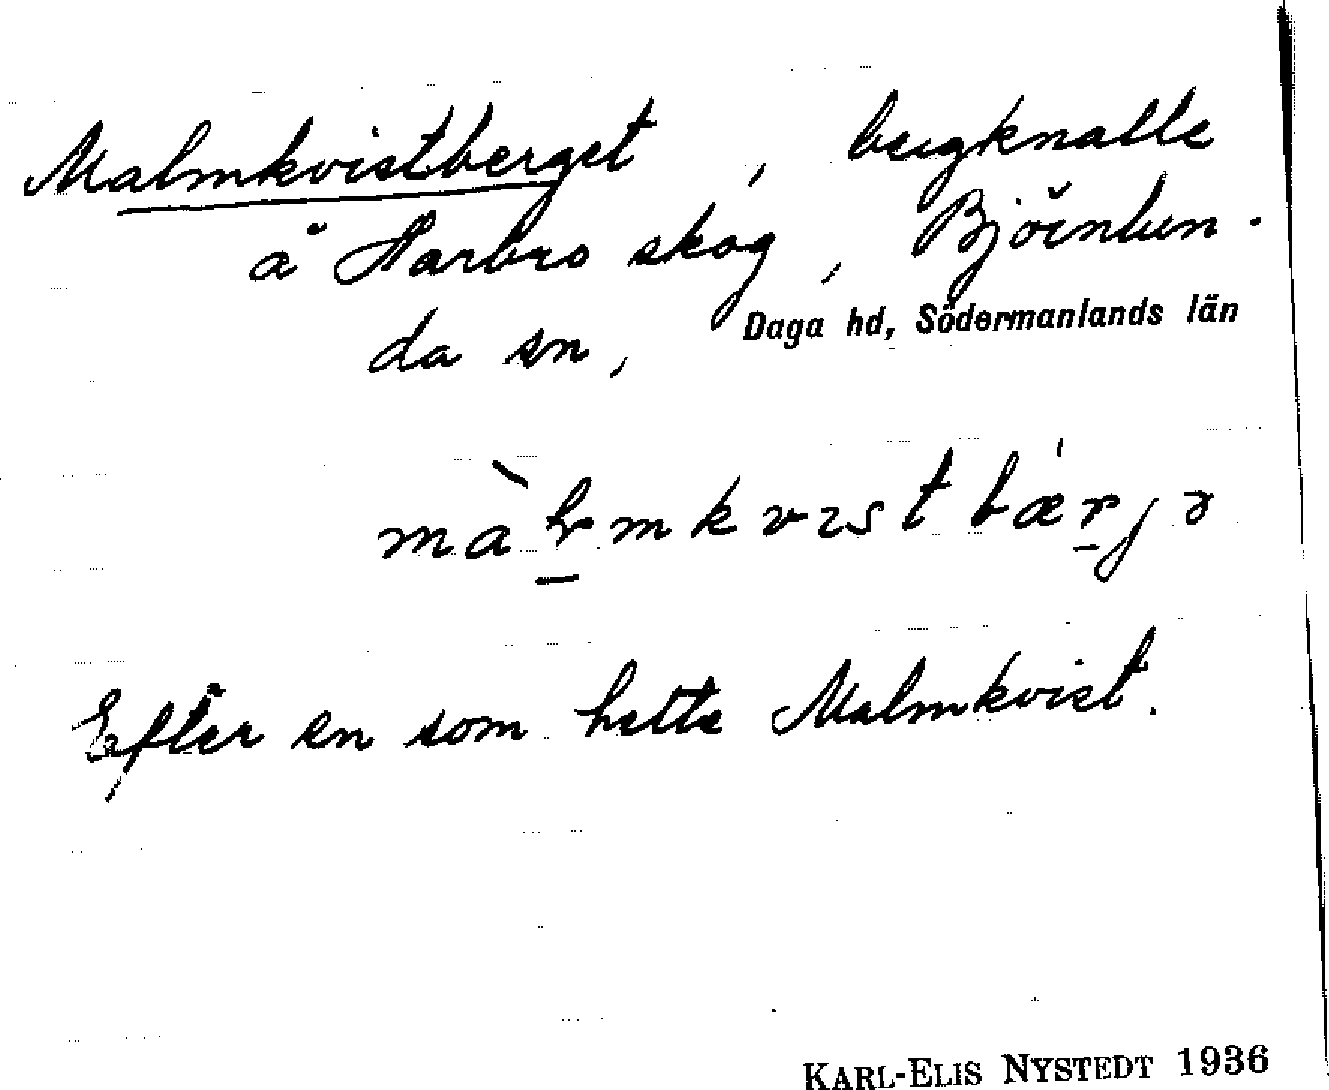 Malmkvistberget, bergknalle
å Harbro skog, Björnlun-
da sn, Daga hd, Södermanlands län
Efter en som hette Malmkvist.
KARL-ELIS NYSTEDT 1936